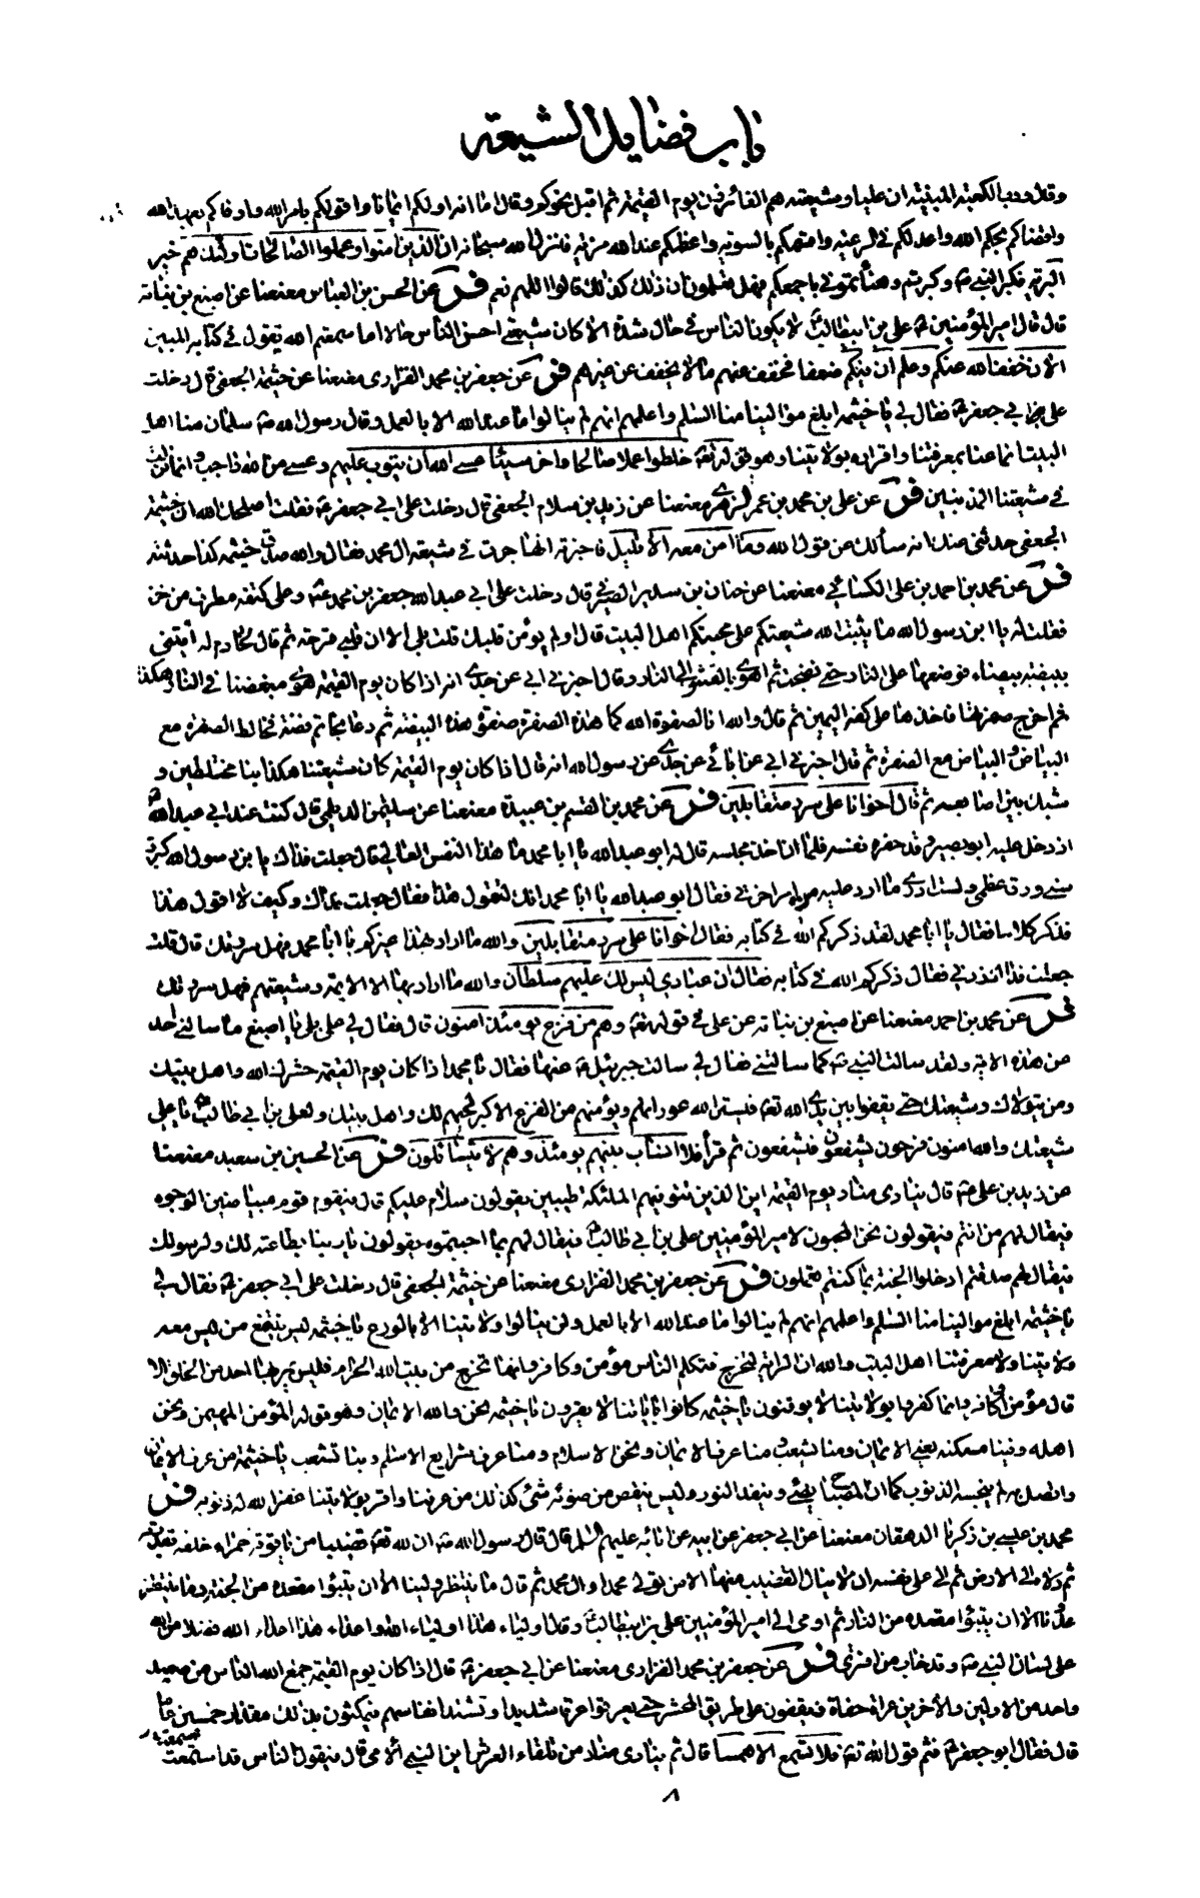 باب فضايل الشيعة
وقال ورب الكعبة المبنية ان عليا وشيعته هم الفائزون يوم القيمة ثم اقبل نحوكم وقال ما انه اولكم ايمانا واقولكم بامر الله واوفاكم بعهد الله
واقضاكم بحكم الله واعدلكم في الرعية واقسمكم بالسوية واعظمكم عند الله مزية فانزل الله سبحانه ان الذين امنوا وعملوا الصالحات اولئك هم خير
البرية فكبر النبي ص وكبرتم وهنأتموني باجمعكم فهل تعلمون ان ذلك كذلك قالوا اللهم نعم فر عن الحسن بن العباس معنعنا عن اصبغ بن نباتة
قال قال امير المؤمنين علي بن ابيطالب لا يكون الناس في حال شدة الا كان شيعتي احسن الناس حالا اما سمعتم الله يقول في كتابه المبين
الان خفف الله عنكم وعلم ان فيكم ضعفا فخفف عنهم ما لا يخفف عن غيرهم فر عن جعفر بن محمد الفزارى معنعنا عن خيثمة الجعفي قال دخلت
على ابي جعفر ع فقال لي يا خيثمة ابلغ موالينا منا السلم واعلمهم انهم لم ينالوا ما عند الله الا بالعمل وقال رسول الله ص سلمان منا اهل
البيت انما عنا بمعرفتنا واقراره بولايتنا وهو قوله تع خلطوا عملا صالحا واخر سيئا عسى الله ان يتوب عليهم وعسى من الله واجب وانما نزلت
في شيعتنا المذنبين فر عن علي بن محمد بن عمر الزهري معنعنا عن زيد بن سلام الجعفي قال دخلت على ابي جعفر ع فقلت اصلحك الله ان خيثمة
الجعفي حدثني عنك انه سألك عن قول الله وما امن معه الا قليل فاخبرته انها جرت في شيعة ال محمد فقال والله صدق خيثمة كذا حدثته
فر عن محمد بن احمد بن علي الكسائي معنعنا عن حنان بن سدير الصيرفي قال دخلت على ابي عبد الله جعفر بن محمد ع وعلى كتفه مطرف من خز
فقلت له يا ابن رسول الله ما يثبت الله شيعتكم على محبتكم اهل البيت قال اولم يؤمن قلبك قلت بلى الا ان قلبي قرحة ثم قال لخادم له ائتني
ببيضة بيضاء فوضعها على النار حتى نضجت ثم اهوى بالقشر الى النار وقال اخبرني ابي عن جدي انه اذا كان يوم القيمة هوى مبغضنا في النار هكذا
ثم اخرج صفرتها فاخذها على كفه اليمين ثم قال والله انا لصفوة الله كما هذه الصفرة صفوة هذه البيضة ثم دعا بخاتم فضة فخالط الصفرة مع
البياض والبياض مع الصفرة ثم قال اخبرني ابي عن ابائي عن جدي عن رسول الله انه قال اذا كان يوم القيمة كان شيعتنا هكذا بنا مختلطين و
شبك بين اصابعه ثم قال اخوانا على سرر متقابلين فر عن محمد بن القسم بن عبيدة معنعنا عن سليمن الديلمي قال كنت عند ابي عبد الله ع
اذ دخل عليه ابو بصير وقد حفزه نفسه فلما ان اخذ مجلسه قال له ابو عبد الله يا ابا محمد ما هذا النفس العالي قال جعلت فداك يا بن رسول الله كبرت
سني ودق عظمي ولست ادري ما ارد عليه من امر اخرتي فقال ابو عبد الله يا ابا محمد انك لتقول هذا فقال جعلت فداك وكيف لا اقول هذا
فذكر كلاما فقال يا ابا محمد لقد ذكركم الله في كتابه فقال اخوانا على سرر متقابلين والله ما اراد بهذا غيركم يا ابا محمد فهل سررتك قال قلت
جعلت فداك زدني فقال ذكركم الله في كتابه فقال ان عبادي ليس لك عليهم سلطان والله ما اراد بها الا الائمة وشيعتهم فهل سررتك
فر عن محمد بن احمد معنعنا عن اصبغ بن نباتة عن علي في قوله تع وهم من فزع يومئذ امنون قال فقال لي علي بلى يا اصبغ ما سالني احد
عن هذه الاية ولقد سالت النبي ص كما سالتني فقال لي سالت جبرئيل ع عنها فقال يا محمد اذا كان يوم القيمة حشرك الله واهل بيتك
ومن يتولاك وشيعتك حتى يقفوا بين يدي الله تع فيستر الله عوراتهم ويؤمنهم من الفزع الاكبر بحبهم لك واهل بيتك ولعلي بن ابي طالب يا علي
شيعتك والله امنون فرحون يشفعون فيشفعون ثم قرأ فلا انساب بينهم يومئذ وهم لا يتسائلون فر عن الحسين بن سعيد معنعنا
عن زيد بن علي ع قال ينادى مناد يوم القيمة اين الذين تتوفيهم الملئكة طيبين يقولون سلام عليكم قال فيقوم قوم مبياضين الوجوه
فيقال لهم من انتم فيقولون نحن المحبون لامير المؤمنين علي بن ابي طالب فيقال لهم بما احببتموه يقولون يا ربنا بطاعته لك ولرسولك
فيقال لهم صدقتم ادخلوا الجنة بما كنتم تعملون فر عن جعفر بن محمد الفزارى معنعنا عن خيثمة الجعفي قال دخلت على ابي جعفر ع فقال لي
يا خيثمة ابلغ موالينا منا السلم واعلمهم انهم لم ينالوا ما عند الله الا بالعمل ولن ينالوا ولايتنا الا بالورع يا خيثمة ليس ينتفع من ليس معه
ولايتنا ولا معرفتنا اهل البيت والله ان الدابة لتخرج فتكلم الناس مؤمن وكافر وانها تخرج من بيت الله الحرام فليس يمر بها احد من الخلق الا
قال مؤمن او كافر وانما كفروا بولايتنا لا يوقنون يا خيثمة كانوا باياتنا لا يقرون يا خيثمة نحن والله الايمان وهو قوله المؤمن المهيمن ونحن
اهله وفينا مسكنه يعني الايمان ومنا يشعب ومنا عرف الايمان ونحن الاسلام ومنا عرف شرايع الاسلم وبنا تشعب يا خيثمة من عرف الايمان
واتصل به لم ينجسه الذنوب كما ان المصباح يضئ وينفذ النور وليس ينقص من ضوئه شئ كذلك من عرفنا واقر بولايتنا غفر الله له ذنوبه فر
محمد بن عيسى بن ذكريا الدهقان معنعنا عن ابي جعفر عن ابيه عن ابائه عليهم السلم قال قال رسول الله ص ان لله تع قضيبا من ياقوتة حمراء خلقه
على لسان النبي ص وقد خاب من افترى فر عن جعفر بن محمد الفزارى معنعنا عن ابي جعفر ع قال اذا كان يوم القيمة جمع الله الناس من صعيد
واحد من الاولين والاخرين عراة حفاة فيقفون على طريق المحشر حتى يعرقوا عرقا شديدا وتشتد انفاسهم فيمكثون بذلك مقدار خمسين عاما
قال فقال ابو جعفر ع فثم قول الله تع فلا تسمع الا همسا قال ثم ينادى مناد من تلقاء العرش اين النبي الامي قال فيقول الناس قد اسمعت
٨